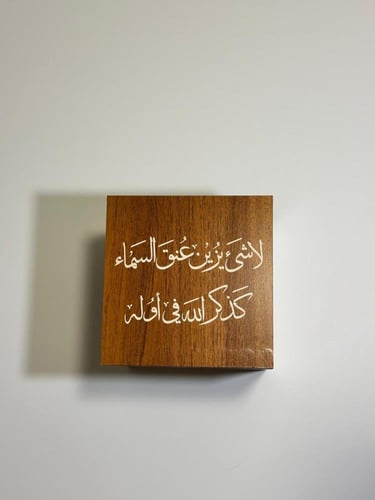 لا شئ يزين عُنق السَماء
كَذكر الله في أوله